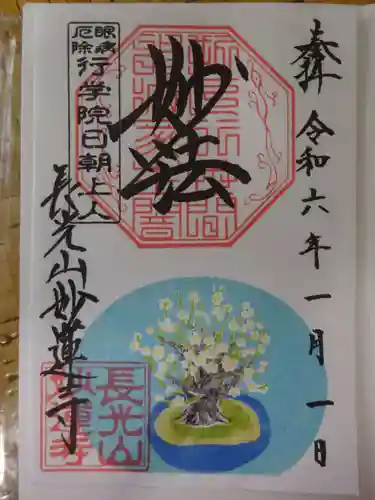 奉拝
令和六年一月一日
妙法
眼病
厄除
行学院日朝上人
長光山妙蓮寺
長光山
妙蓮寺